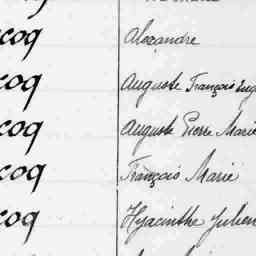 coq Alexandre
coq Auguste François
coq Auguste Pierre Marie
coq François Marie
coq Hyacinthe Julien